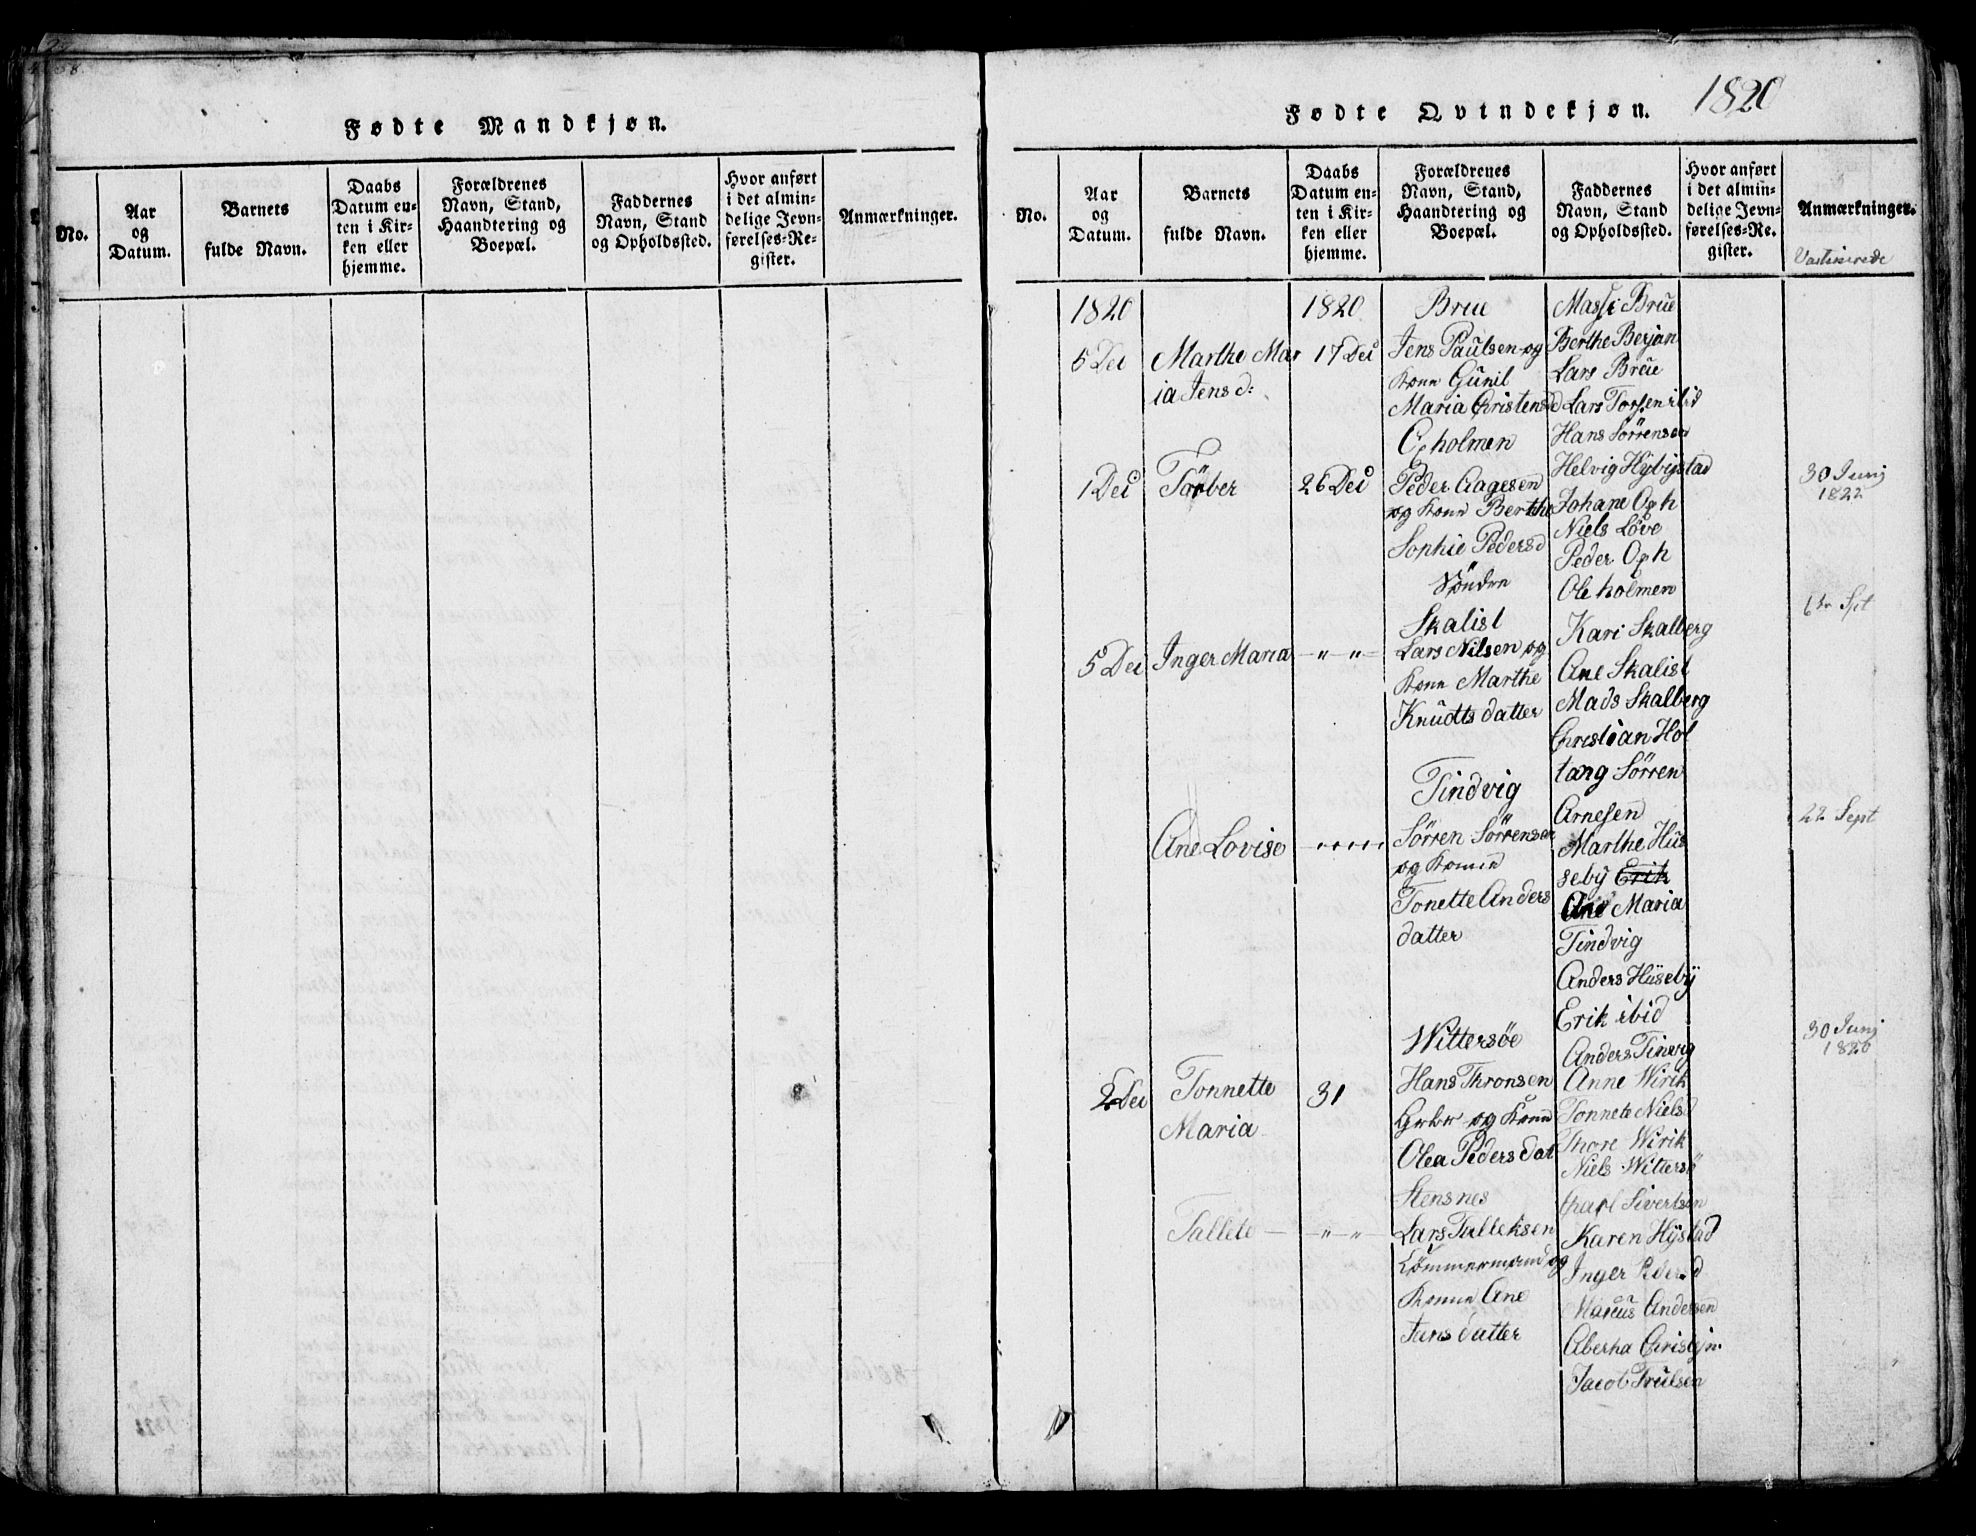 Fødte Mandkjøn.
No.
Aar og Datum.
Barnets fulde Navn.
Daabs Datum enten i Kirken eller hjemme.
Forældrenes Navn, Stand, Haandtering og Boepæl.
Faddernes Navn, Stand og Opholdssted.
Hvor anført i det almindelige Jevnførelses-Register.
Anmærkninger.
1820
Fødte Qvindekjøn.
No.
Aar og Datum.
Barnets fulde Navn.
Daabs Datum enten i Kirken eller hjemme.
Forældrenes Navn, Stand, Haandtering og Boepæl.
Faddernes Navn, Stand og Opholdssted.
Hvor anført i det almindelige Jevnførelses-Register.
Anmærkninger.
1820
1820
5 Dec
Marthe Mar
ia Jens d:
17 Dec
Brue
Jens Paulsen og
Kone Gunil
Maria Christensd
Massi Brue
Berthe Berjan
Lars Brue
Lars Torsen ibid
Hans Sörrensen
1 Dec
26 Dec
holmen
Peder Aagesen
og Kone Berthe
Sophie Pedersd
Helvig Hybystad
Johane Oph
Niels Löve
Peder Oph
Ole holmen
30 Junj
1822
5 Dec
Inger Maria
" "
Söndre
Skalist
Lars Nilsen og
Kone Marthe
Knudts datter
Kari Skalberg
Ane Skalist
Mads Skalberg
Christian Hol
tang Sörren
Arnesen
Ane Lovise
Tindvig
Sörren Sörrensen
og Konen
Tonette Anders
datter
Marthe Hus
seby Erik
Ane Maria
Tindvig
Anders Hüseby
Erik ibid
Anders Tinvig
22 Sept
2 Dec
Tonnette
Maria
31
Wittersöe
Hans Thronsen
og Kone
Olea Peders dat
Anne Wirik
Tonnete Nielsd
Thore Wirik
Niels Wittersö
30 Junj
1820
Tallete
" "
Stensnes
Lars Talleksen
Tömmermand og
Konen Ane
Jans datter
Charl Sivertsen
Karen Hystad
Inger Pedersd
Marcus Andersen
Jacob Trulsen